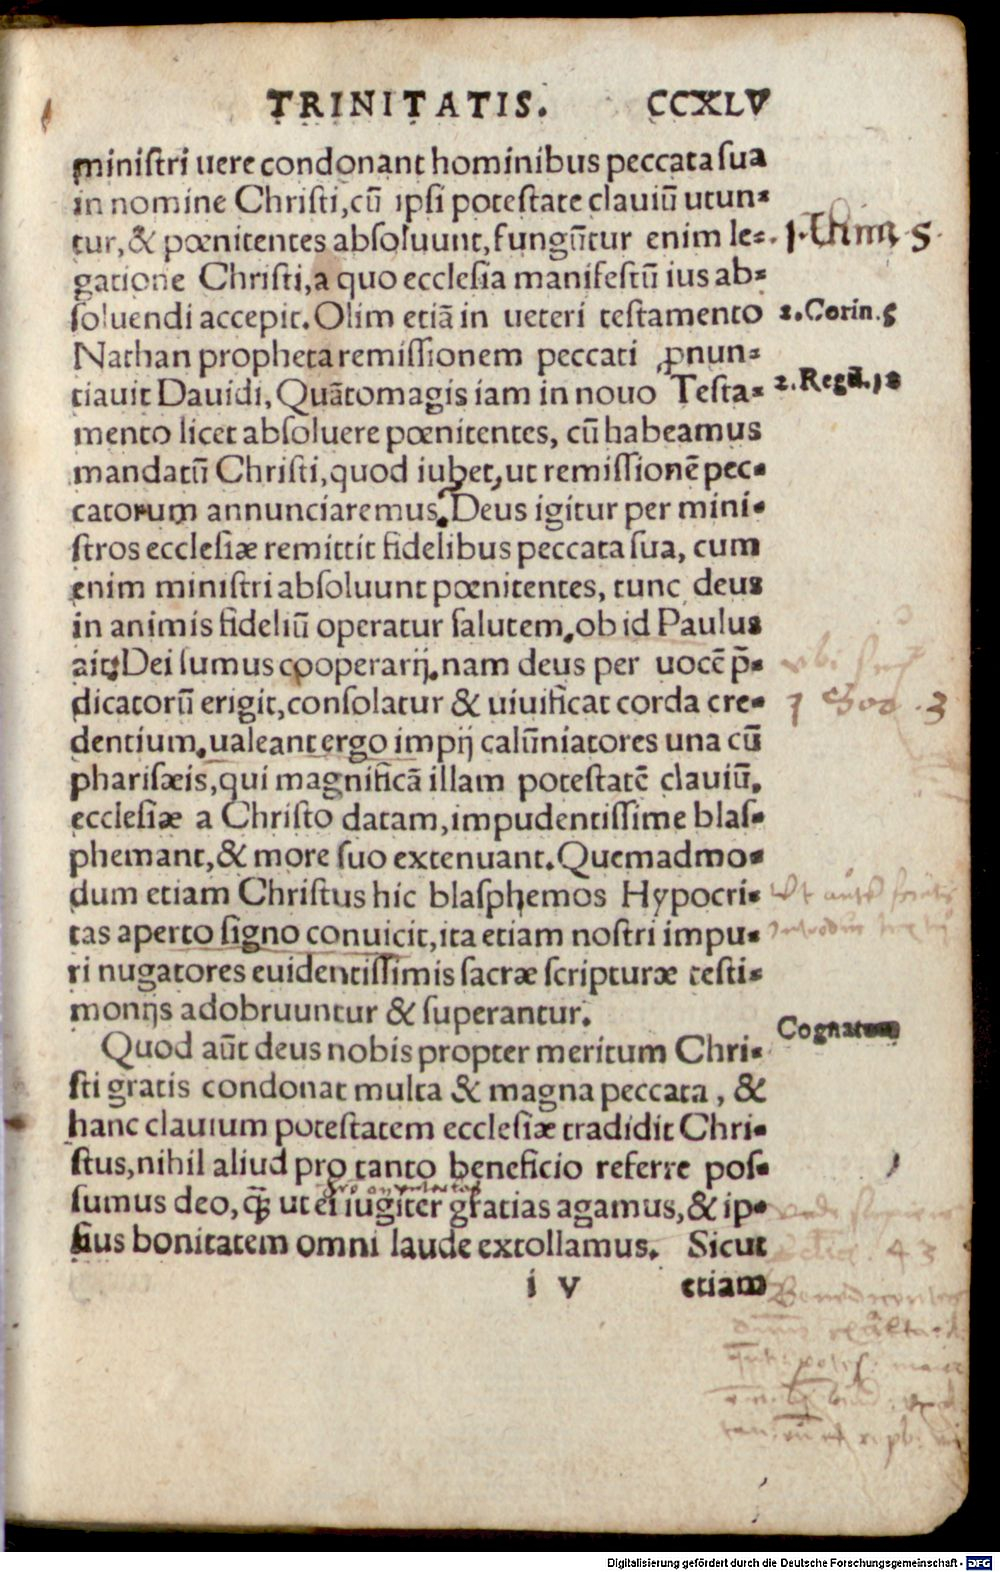 TRINITATIS. CCXLV
ministri uere condonant hominibus peccata sua
in nomine Christi, cũ ipsi potestate clauiũ utun-
tur, & pœnitentes absoluunt, fungũtur enim le-
gatione Christi, a quo ecclesia manifestũ ius ab-
soluendi accepit. Olim etiã in ueteri testamento
2. Corin. 5
Nathan propheta remissionem peccati ꝓnun-
tiauit Dauidi, Quãtomagis iam in nouo Testa-
2. Regũ. 12
mento licet absoluere pœnitentes, cũ habeamus
mandatũ Christi, quod iubet, ut remissionẽ pec-
catorum annunciaremus? Deus igitur per mini-
stros ecclesiæ remittit fidelibus peccata sua, cum
enim ministri absoluunt pœnitentes, tunc deus
in animis fideliũ operatur salutem, ob id Paulus
ait: Dei sumus cooperarij. nam deus per uocẽ p̃-
dicatorũ erigit, consolatur & uiuificat corda cre-
1 Cor. 3
dentium. ualeant ergo impij calũniatores una cũ
pharisæis, qui magnificã illam potestatẽ clauiũ,
ecclesiæ a Christo datam, impudentissime blas-
phemant, & more suo extenuant. Quemadmo-
dum etiam Christus hic blasphemos Hypocri-
tas aperto signo conuicit, ita etiam nostri impu-
ri nugatores euidentissimis sacræ scripturæ testi-
monijs adobruuntur & superantur.
Quod aũt deus nobis propter meritum Chri-
sti gratis condonat multa & magna peccata, &
hanc clauium potestatem ecclesiæ tradidit Chri-
stus, nihil aliud pro tanto beneficio referre pos-
sumus deo, q̃ꝫ ut ei iugiter gratias agamus, & ip-
sius bonitatem omni laude extollamus. Sicut
43
i v etiam
Digitalisierung gefördert durch die Deutsche Forschungsgemeinschaft - DFG